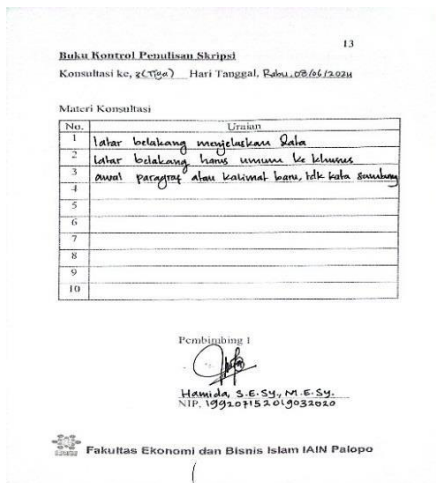 13
Buku Kontrol Penulisan Skripsi
Konsultasi ke, 3(Tiga) Hari Tanggal, Rabu, 03/06/2024
Materi Konsultasi
No. Uraian
1 latar belakang menjelaskan Data
2 latar belakang harus umum ke khusus
3 awal paragraf atau kalimat baru, tdk kata sambung
4
5
6
7
8
9
10
Pembimbing 1
Hamida, S.E.Sy., M.E.Sy.
NIP. 199207152019032020
Fakultas Ekonomi dan Bisnis Islam IAIN Palopo